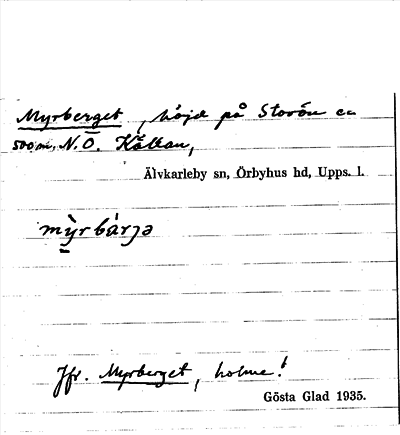 Myrberget, höjd på Storön ca
500 m. N.O. Kållan,
Älvkarleby sn, Örbyhus hd, Upps. l.
mỳrbárjə
Jfr. Myrberget, holme!
Gösta Glad 1935.